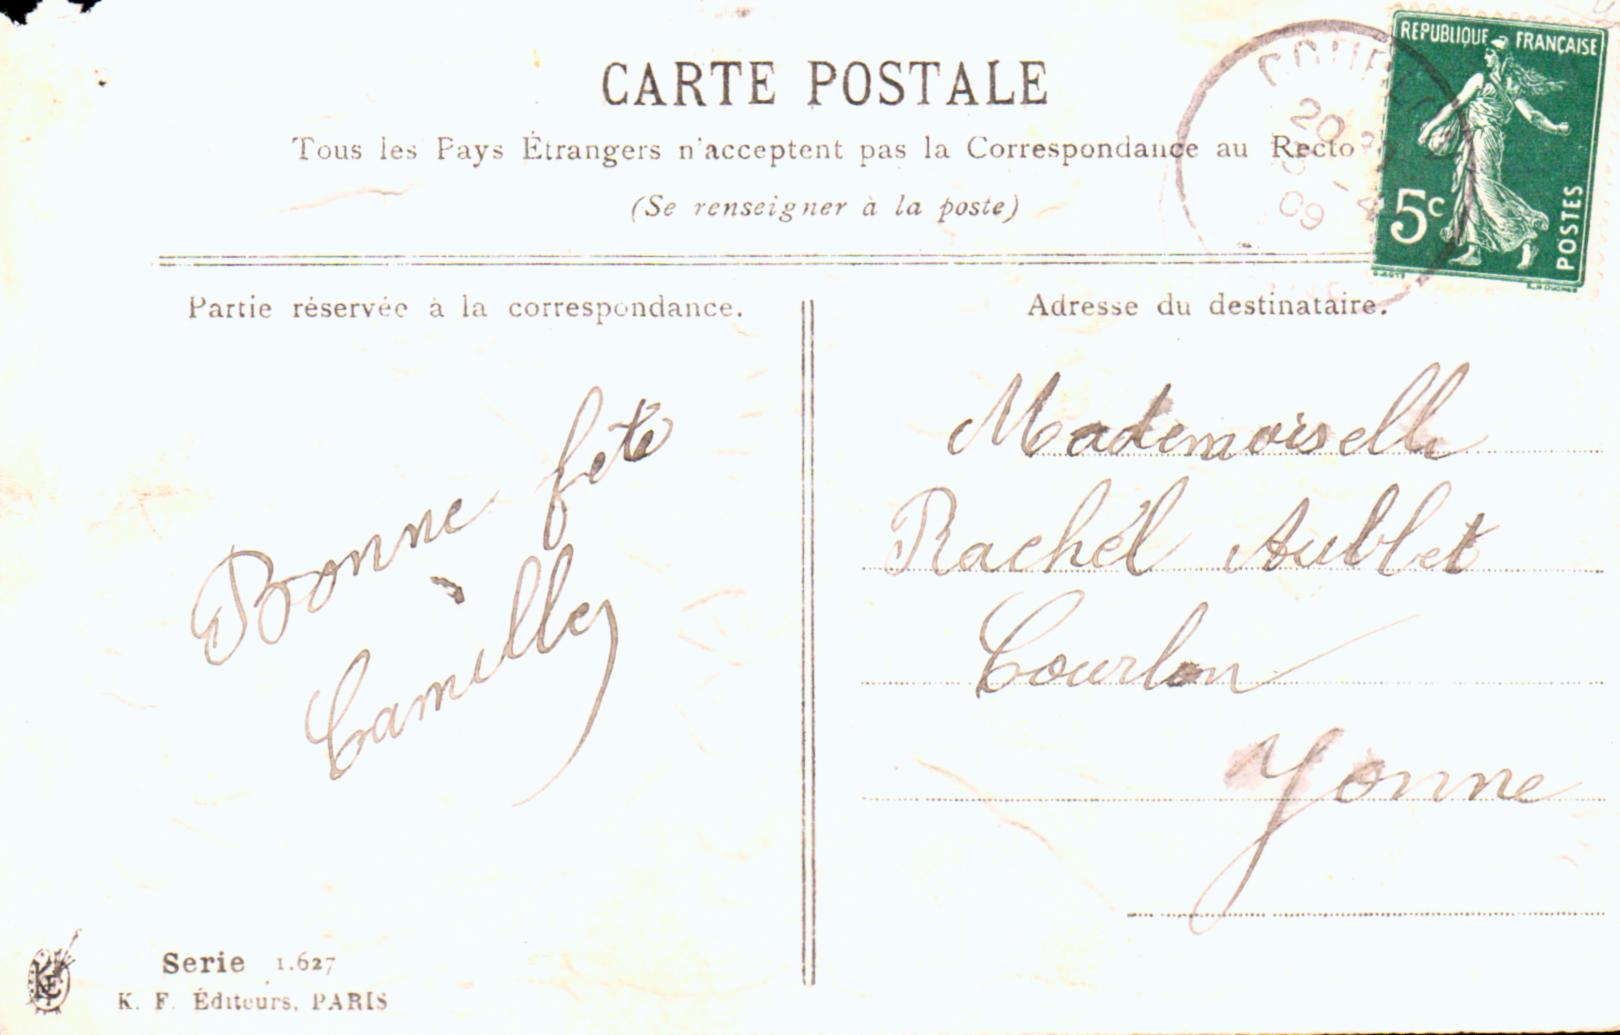 CARTE POSTALE
Tous les Pays Étrangers n'acceptent pas la Correspondance au Recto
(Se renseigner à la poste)
REPUBLIQUE FRANÇAISE
5c
POSTES
20
3 - 4
09
Partie réservée à la correspondance.
Adresse du destinataire.
Bonne fete
Camille
Mademoiselle
Rachél Aublet
Courlon
Yonne
Serie 1.627
K. F. Éditeurs, PARIS